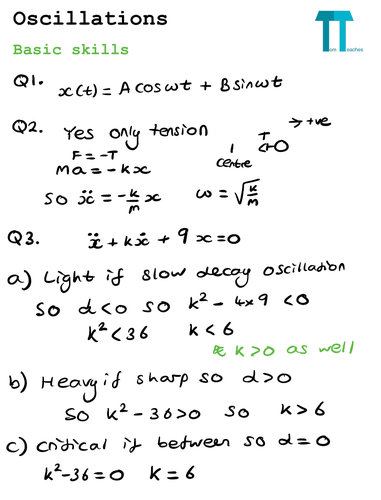 Oscillations
Tom Teaches
Basic skills
Q1. x(t) = A cos ωt + B sin ωt
Q2. Yes only tension
→ +ve
F = -T
centre
T
ma = -kx
so ẍ = -k/m x   ω = √(k/m)
Q3. ẍ + kẋ + 9x = 0
a) Light if slow decay oscillation
so d<0 so k² - 4x9 <0
k² < 36   k < 6
& k>0 as well
b) Heavy if sharp so d>0
so k² - 36>0 so k > 6
c) Critical if between so d = 0
k² - 36 = 0   k = 6